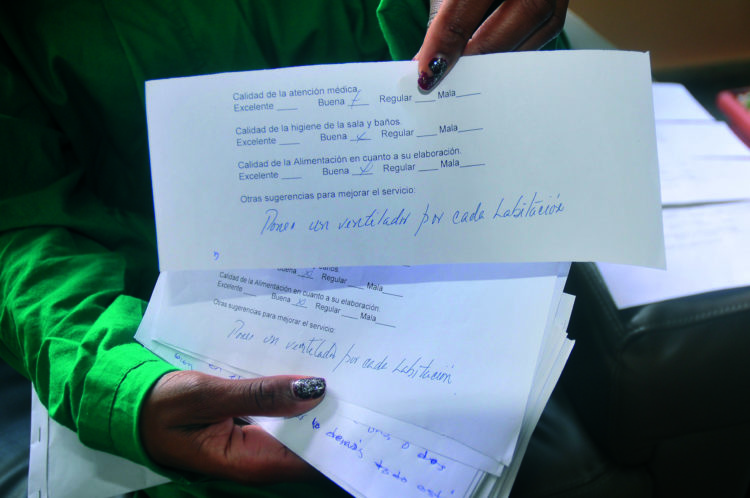 Calidad de la atención médica.
Excelente ____ Buena _x_ Regular ____ Mala_____
Calidad de la higiene de la sala y baños.
Excelente ____ Buena _x_ Regular ____ Mala_____
Calidad de la Alimentación en cuanto a su elaboración.
Excelente ____ Buena _x_ Regular ____ Mala_____
Otras sugerencias para mejorar el servicio:
Poner un ventilador por cada habitación
baños.
Buena _x_ Regular ____ Mala____
Calidad de la Alimentación en cuanto a su elaboración.
Excelente ____ Buena _x_ Regular ____ Mala____
Otras sugerencias para mejorar el servicio:
Poner un ventilador por cada habitación
bien en
uno o dos
lo demás todo está